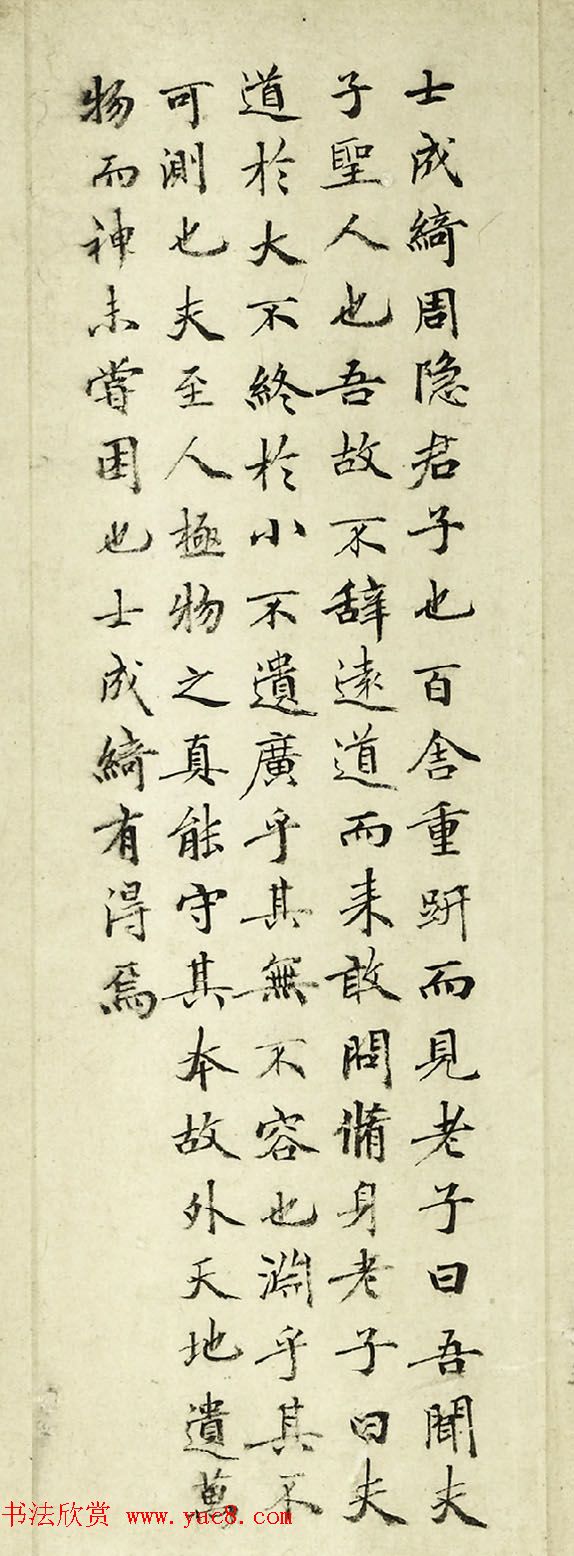 士成綺周隐君子也百舍重趼而見老子曰吾聞夫
子聖人也吾故不辭遠道而来敢問脩身老子曰夫
道於大不終於小不遺廣乎其無不容也淵乎其不
可測也夫至人極物之真能守其本故外天地遺萬
物而神未嘗困也士成綺有得焉
书法欣赏 www.yac8.com